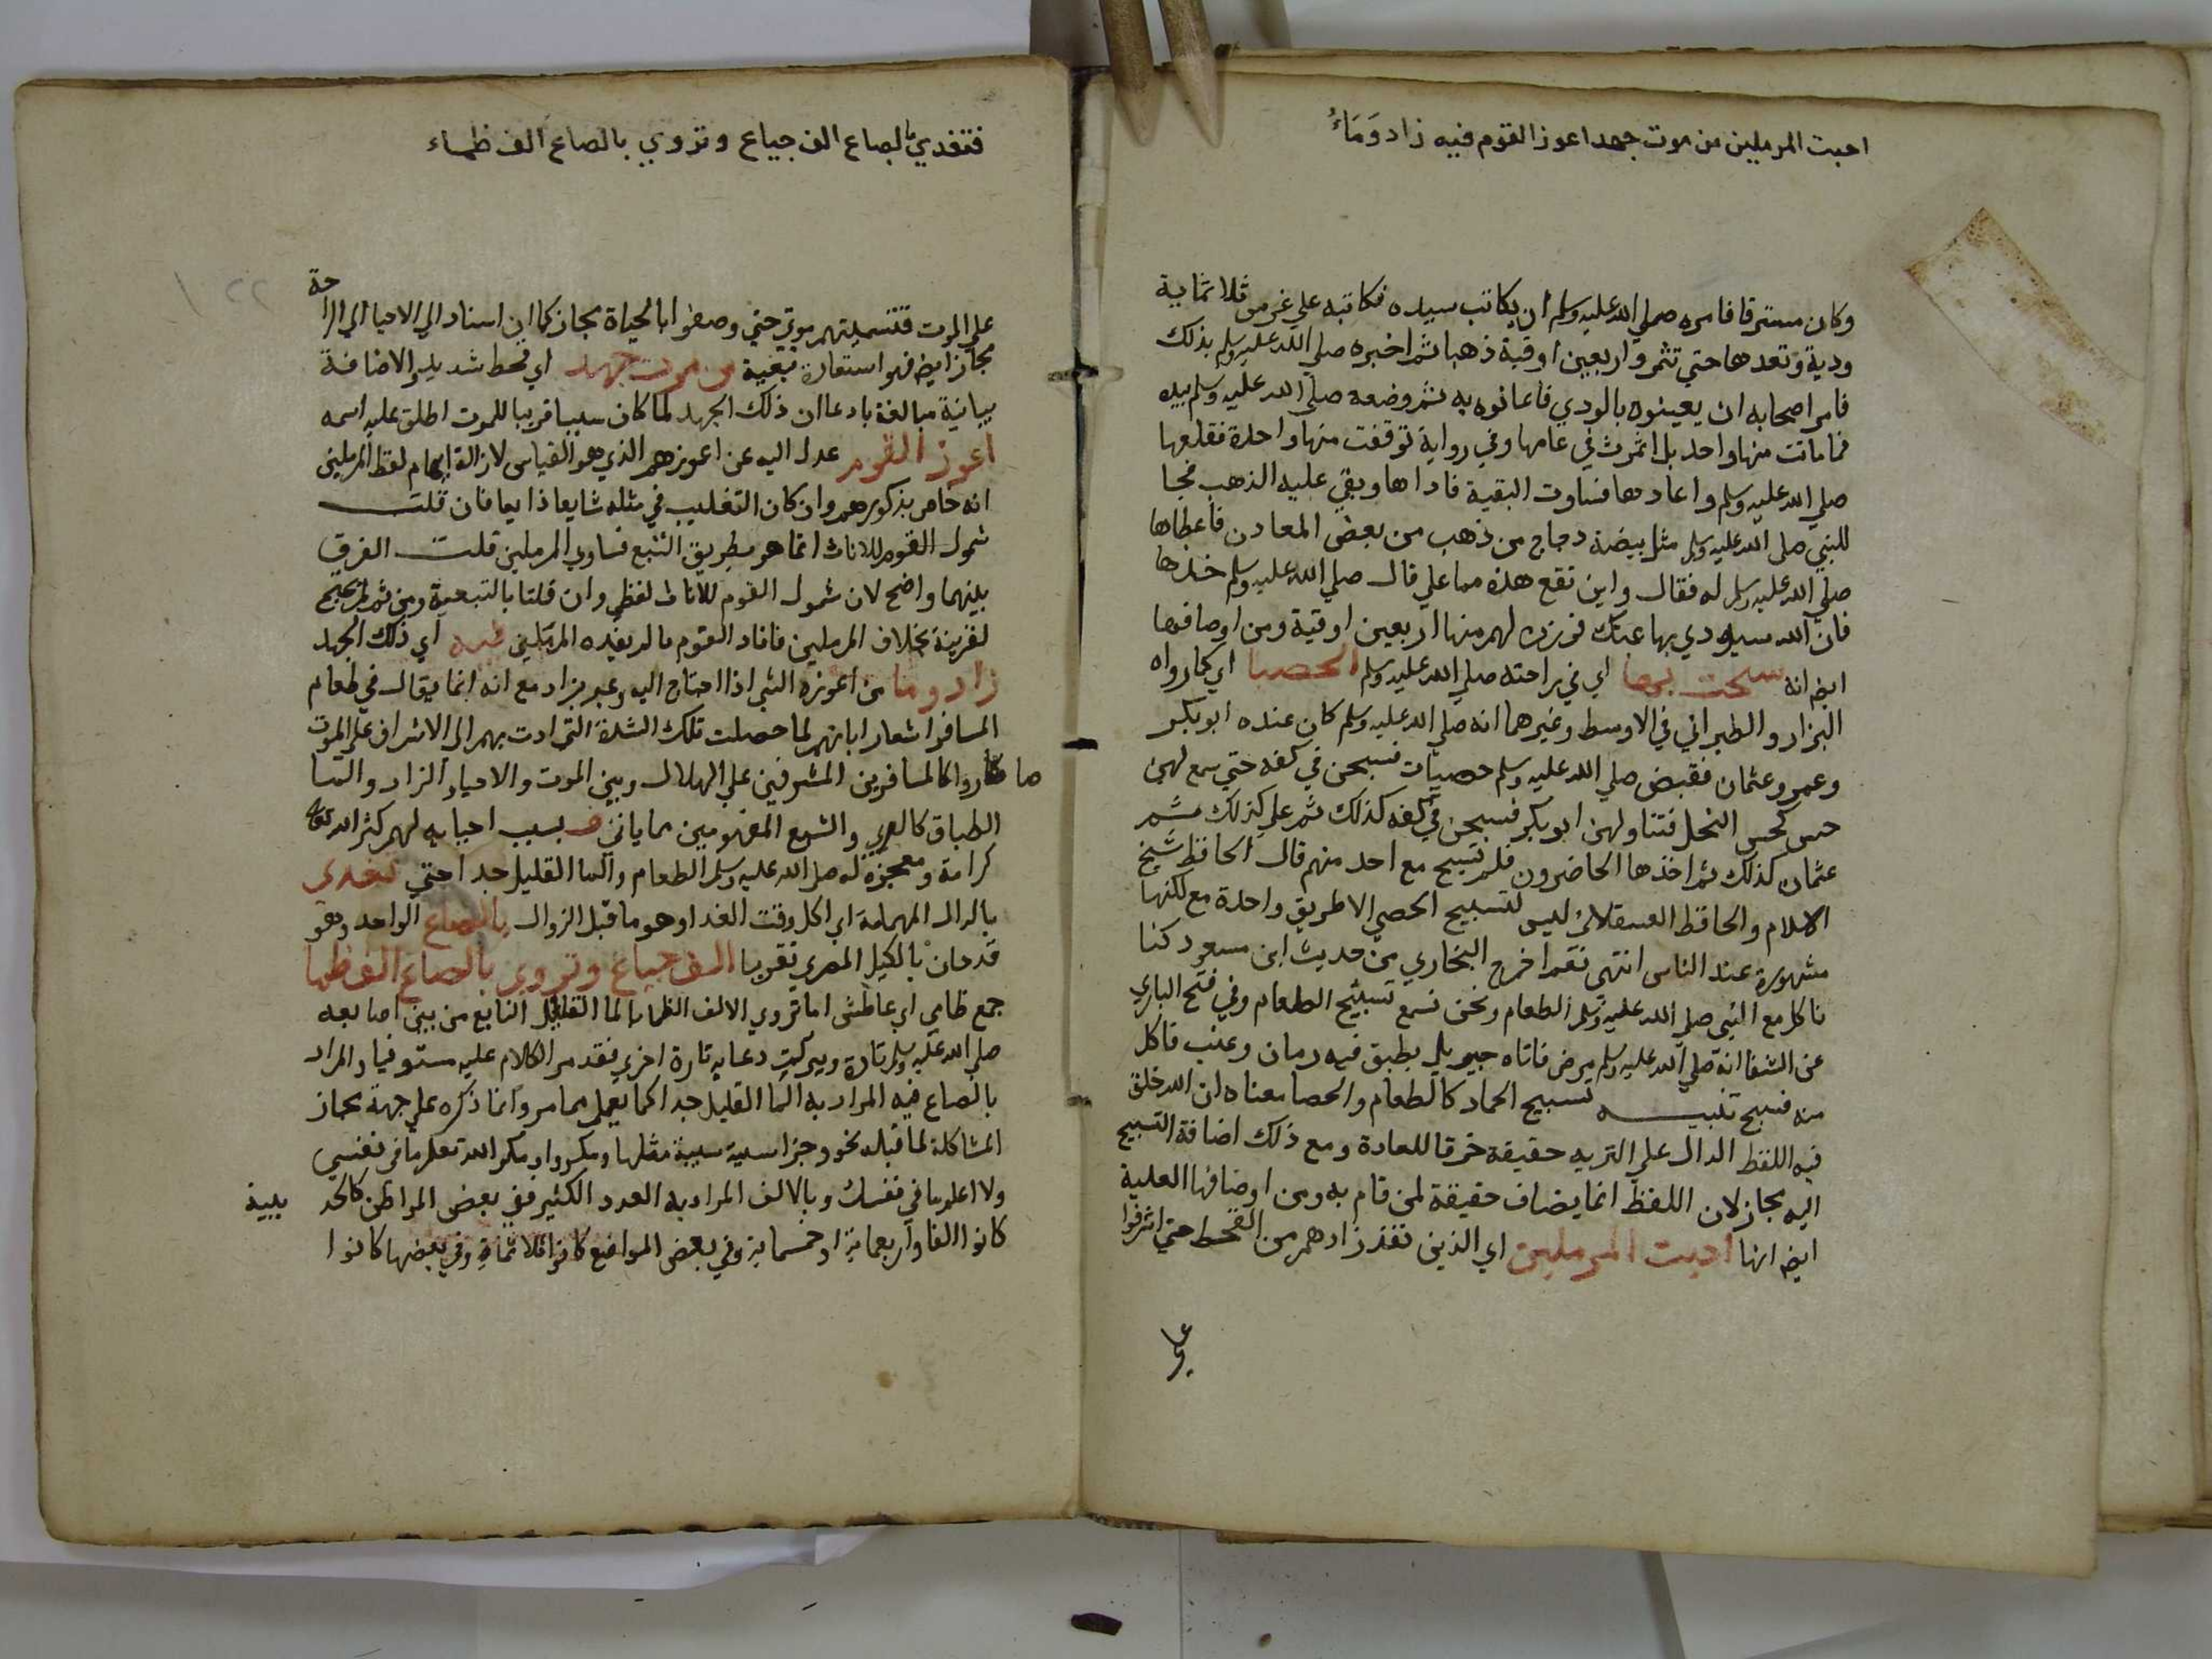 احيت المرملين من موت جهد اعوز القوم فيه زاد وَمَاءُ
وكان مسترقا فامره صلي الله عليه وسلم ان يكاتب سيده فكاتبه علي غرس ثلاثماية
ودية وتعدها حتي تثمر واربعين اوقية ذهبا ثم اخبره صلي الله عليه وسلم بذلك
فامر اصحابه ان يعينوه بالودي فاعانوه به ثم وضعه صلي الله عليه وسلم بيده
فما ماتت منها واحد بل اثمرت في عامها وفي رواية توقفت منها واحدة فقلعها
صلي الله عليه وسلم واعادها فساوت البقية فاداها وبقي عليه الذهب فجا
للنبي صلي الله عليه وسلم مثل بيضة دجاج من ذهب من بعض المعادن فاعطاها
صلي الله عليه وسلم له فقال واين تقع هذه مما علي قال صلي الله عليه وسلم خذها
فان الله سيودي بها عنك فوزن لهم منها اربعين اوقية ومن اوصافها
ايض انه سبحت بها اي في راحته صلي الله عليه وسلم الحصبا اي كما رواه
البزار والطبراني في الاوسط وغيرهما انه صلي الله عليه وسلم كان عنده ابو بكر
وعمر وعثمان فقبض صلي الله عليه وسلم حصيات فسبحن في كفه حتي سمع لهن
حس كحس النحل فتناولهن ابو بكر فسبحن في كفه كذلك ثم علي كذلك ثم
عثمان كذلك ثم اخذها الحاضرون فلم تسبح مع احد منهم قال الحافظ شيخ
الاسلام والحافظ العسقلاني ليس لتسبيح الحصي الا طريق واحدة مع لكنها
مشهورة عند الناس انتهي نعم اخرج البخاري من حديث ابن مسعود كنا
ناكل مع النبي صلي الله عليه وسلم الطعام ونحن نسمع تسبيح الطعام وفي فتح الباري
عن الشفا انه صلي الله عليه وسلم مرض فاتاه جبريل بطبق فيه رمان وعنب فاكل
منه فسبح تنبيه تسبيح الجماد كالطعام والحصا معناه ان الله خلق
فيه اللفظ الدال علي التنزيه حقيقة خرقا للعادة ومع ذلك اضافة التسبيح
اليه مجاز لان اللفظ انما يضاف حقيقة لمن قام به ومن اوصافها العلية
ايض انها احيت المرملين اي الذين نفذ زادهم من القحط حتي اشرفوا
فتغدي بالصاع الف جياع وتروي بالصاع الف ظماء
علي الموت فتسميتهم موتي حتي وصفوا بالحياة مجاز كما ان اسناد الي الاحيا الي الراحة
مجاز ايض فهو استعارة تبعية من موت جهد اي قحط شديد والاضافة
بيانية مبالغة بادعا ان ذلك الجهد لما كان سببا قريبا للموت اطلق عليه اسمه
اعوز القوم عدل اليه عن اعوزهم الذي هو القياس لازالة ايهام لفظ المرملين
انه خاص بذكورهم وان كان التغليب في مثله شايعا ذايعا فان قلت
شمول القوم للاناث انما هو بطريق التبع فساوي المرملين قلت الفرق
بينهما واضح لان شمول القوم للاناث لفظي وان قلنا بالتبعية ومن ثم لم يحتج
لقرينة بخلاف المرملين فافاد القوم ما لم يفده المرملين فيه اي ذلك الجهد
زاد وما من اعوزه الشي اذا احتاج اليه وعبر بزاد مع انه انما يقال في طعام
المسافر اشعارا بانهم لما حصلت تلك الشدة التي ادت بهم الي الاشراف علي الموت
صاروا كالمسافرين المشرفين علي الهلاك وبين الموت والاحيا والزاد والما
الطباق كالعري والشبع المفهومين مما ياتي فبسبب احيايه لهم كثر الله تعالي
كرامة ومعجزة له صلي الله عليه وسلم الطعام والما القليل جدا حتي تغدي
بالدال المهملة اي اكل وقت الغدا وهو ما قبل الزوال بالصاع الواحد وهو
قدحان بالكيل المصري تقريبا الف جياع وتروي بالصاع الف ظما
جمع ظامي اي عاطش اما تروي الالف الظما بالما القليل النابع من بين اصابعه
صلي الله عليه وسلم تارة وببركة دعايه تارة اخري فقد مر الكلام عليه مستوفيا والمراد
بالصاع فيه المراد به الما القليل جدا كما يعلم مما مر وانما ذكره علي جهة مجاز
المشاكلة لما قبله نحو وجزا سيية سيية مثلها ومكروا ومكر الله تعلم ما في نفسي
ولا اعلم ما في نفسك وبالالف المراد به العدد الكثير ففي بعض المواطن كالحديبية
كانوا الفا واربعماية او خمسماية وفي بعض المواضع كانوا ثلاثماية وفي بعضها كانوا